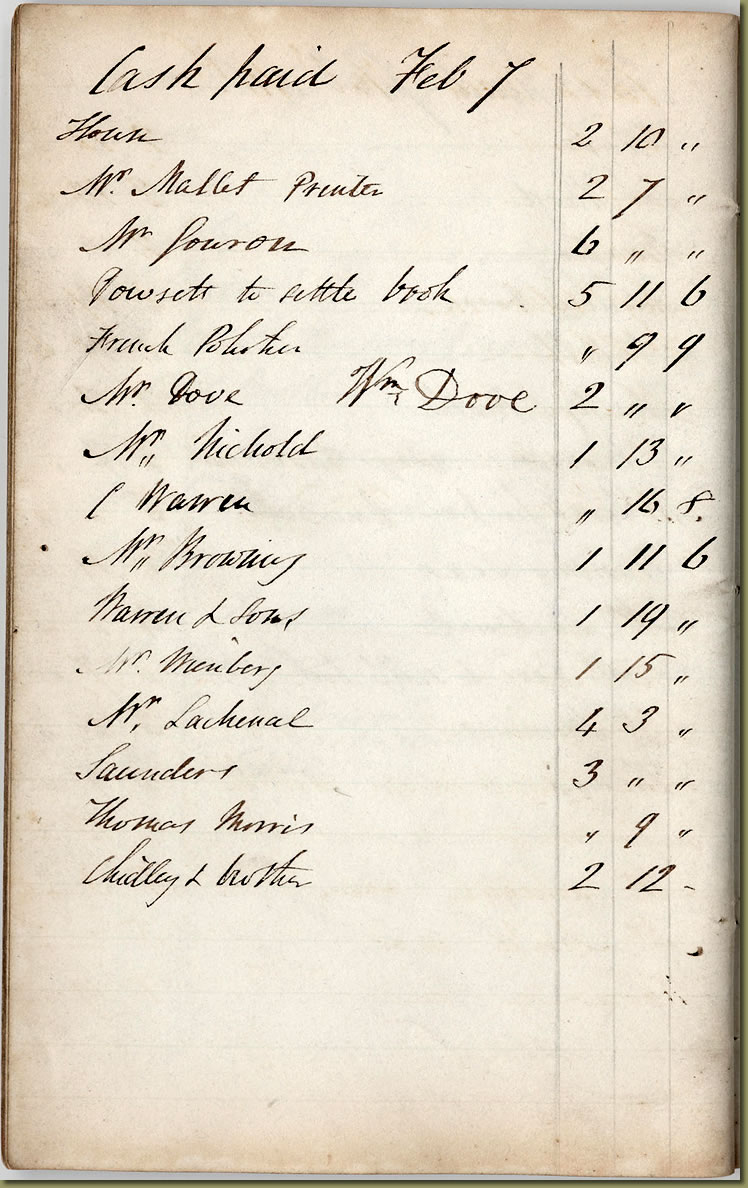 Cash paid Feb 7
2 10 "
Mr. Mallet Printer 2 7 "
Mr Gouron 6 " "
Dowsett to settle book 5 11 6
French Polisher " 9 9
Mr. Dove Wm Dove 2 " "
Mr. Nichold 1 13 "
C Warren " 16 8.
Mr. Browning 1 11 6
Warren & Sons 1 19 "
Mr. Wienberg 1 15 "
Mr. Lachenal 4 3 "
Saunders 3 " "
Thomas Morris " 9 "
Chidley & brother 2 12 -